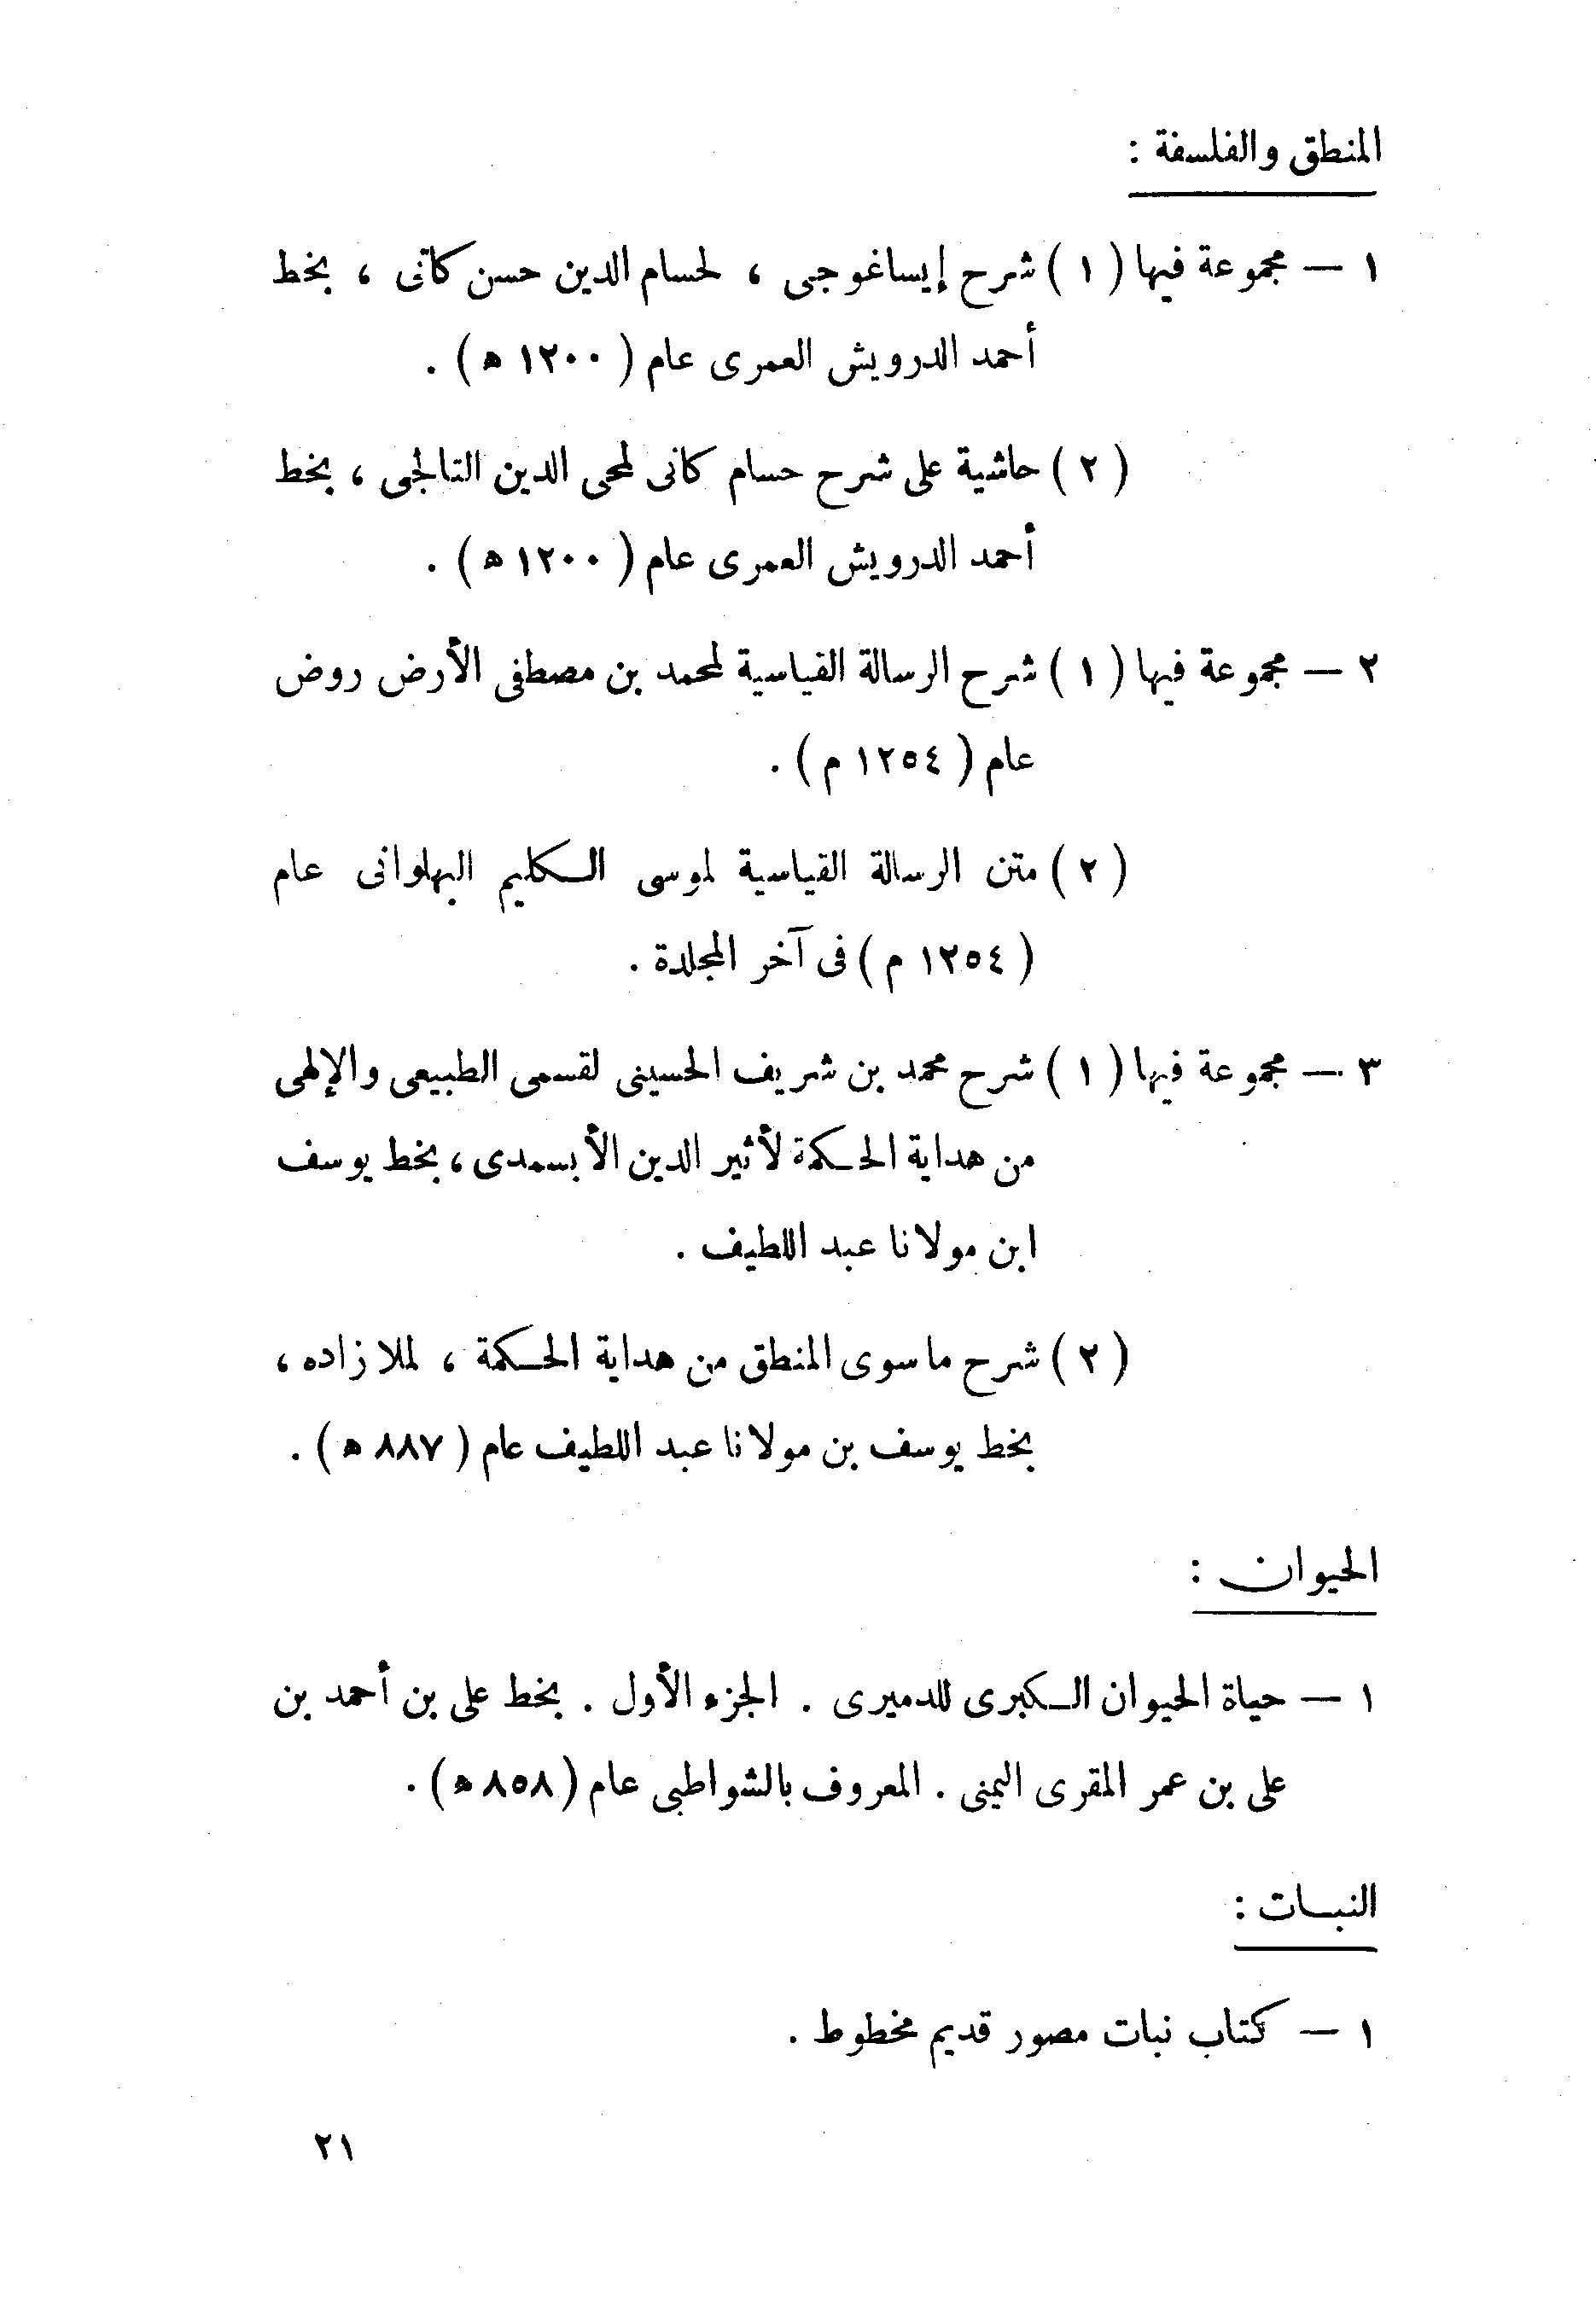 المنطق والفلسفة :
١ — مجموعة فيها ( ١ ) شرح إيساغوجى ، لحسام الدين حسن كاتى ، بخط
أحمد الدرويش العمرى عام ( ١٢٠٠ ه ) .
( ٢ ) حاشية على شرح حسام كانى لمحى الدين التالجى ، بخط
أحمد الدرويش العمرى عام ( ١٢٠٠ ه ) .
٢ — مجموعة فيها ( ١ ) شرح الرسالة القياسية لمحمد بن مصطفى الأرض روض
عام ( ١٢٥٤ م ) .
( ٢ ) متن الرسالة القياسية لموسى الكليم البهلوانى عام
( ١٢٥٤ م ) فى آخر المجلدة .
٣ — مجموعة فيها ( ١ ) شرح محمد بن شريف الحسينى لقسمى الطبيعى والإلهى
من هداية الحكمة لأثير الدين الأبسمدى ، بخط يوسف
ابن مولانا عبد اللطيف .
( ٢ ) شرح ماسوى المنطق من هداية الحكمة ، لملا زاده ،
بخط يوسف بن مولانا عبد اللطيف عام ( ٨٨٧ ه ) .
الحيوان :
١ — حياة الحيوان الكبرى للدميرى . الجزء الأول . بخط على بن أحمد بن
على بن عمر المقرى اليمنى . المعروف بالشواطبى عام ( ٨٥٨ ه ) .
النبات :
١ — كتاب نبات مصور قديم مخطوط .
٢١